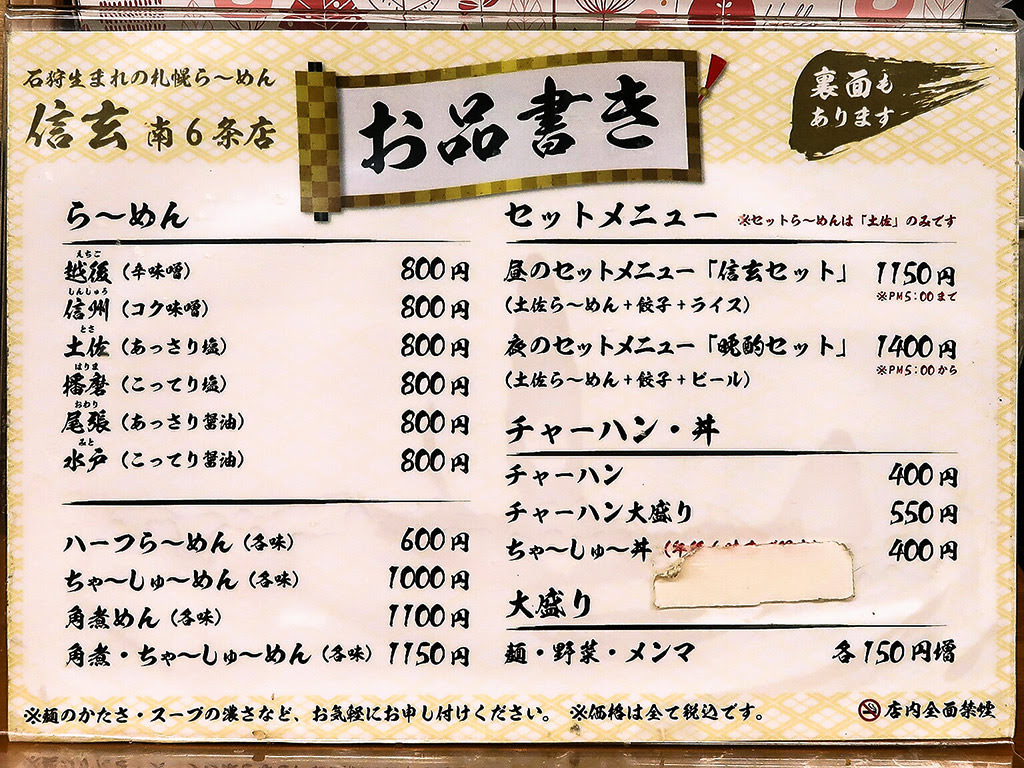 Hello
石狩生まれの札幌ら〜めん
信玄 南6条店
お品書き
裏面も
あります
ら〜めん
えちご
越後（辛味噌） 800円
しんしゅう
信州（コク味噌） 800円
とさ
土佐（あっさり塩） 800円
はりま
播磨（こってり塩） 800円
おわり
尾張（あっさり醤油） 800円
みと
水戸（こってり醤油） 800円
ハーフら〜めん（各味） 600円
ちゃ〜しゅ〜めん（各味） 1000円
角煮めん（各味） 1100円
角煮・ちゃ〜しゅ〜めん（各味） 1150円
セットメニュー ※セットら〜めんは「土佐」のみです
昼のセットメニュー「信玄セット」 1150円
（土佐ら〜めん＋餃子＋ライス） ※PM5:00まで
夜のセットメニュー「晩酌セット」 1400円
（土佐ら〜めん＋餃子＋ビール） ※PM5:00から
チャーハン・丼
チャーハン 400円
チャーハン大盛り 550円
ちゃ〜しゅ〜丼 400円
大盛り
麺・野菜・メンマ 各150円増
※麺のかたさ・スープの濃さなど、お気軽にお申し付けください。 ※価格は全て税込です。
店内全面禁煙